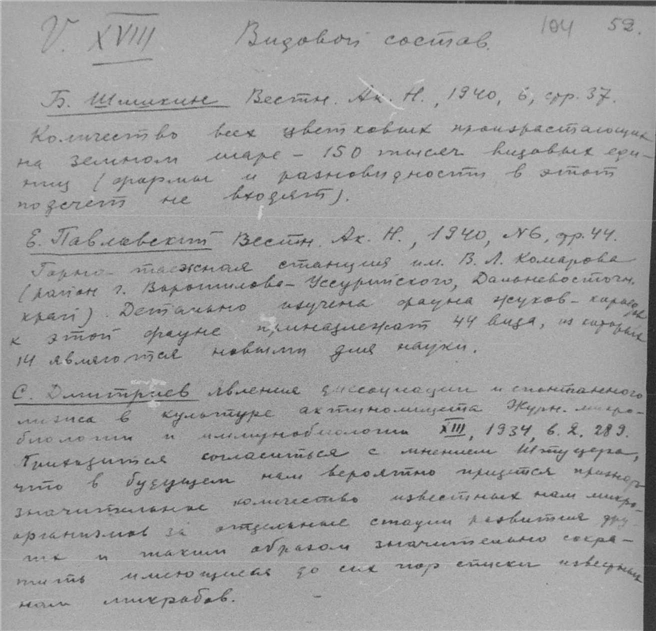 V. XVIII Видовой состав. 104 52.
Б. Шишкин Вестн. Ак. Н., 1940, 6, стр. 37.
Количество всех цветковых произрастающих
на земном шаре – 150 тысяч видовых еди-
ниц (формы и разновидности в этот
подсчет не входят).
Е. Павловский Вестн. Ак. Н., 1940, №6, стр. 44.
Горно-таежная станция им. В. Л. Комарова
(район г. Ворошилова-Уссурийского, Дальневосточн.
край). Детально изучена фауна жуков-
к этой фауне принадлежат 44 вида, из которых
14 являются новыми для науки.
С. Дмитриев Явления диссоциации и спонтанного
лизиса в культуре актиномицета Журн. микро-
биологии и иммунобиологии XIII, 1934, в. 2. 289.
Приходится согласиться с мнением Штуцера,
что в будущем нам вероятно придется признать
значительное количество известных нам микро-
организмов за отдельные стадии развития дру-
гих и таким образом значительно сокра-
тить имеющиеся до сих пор списки известных
нам микробов.